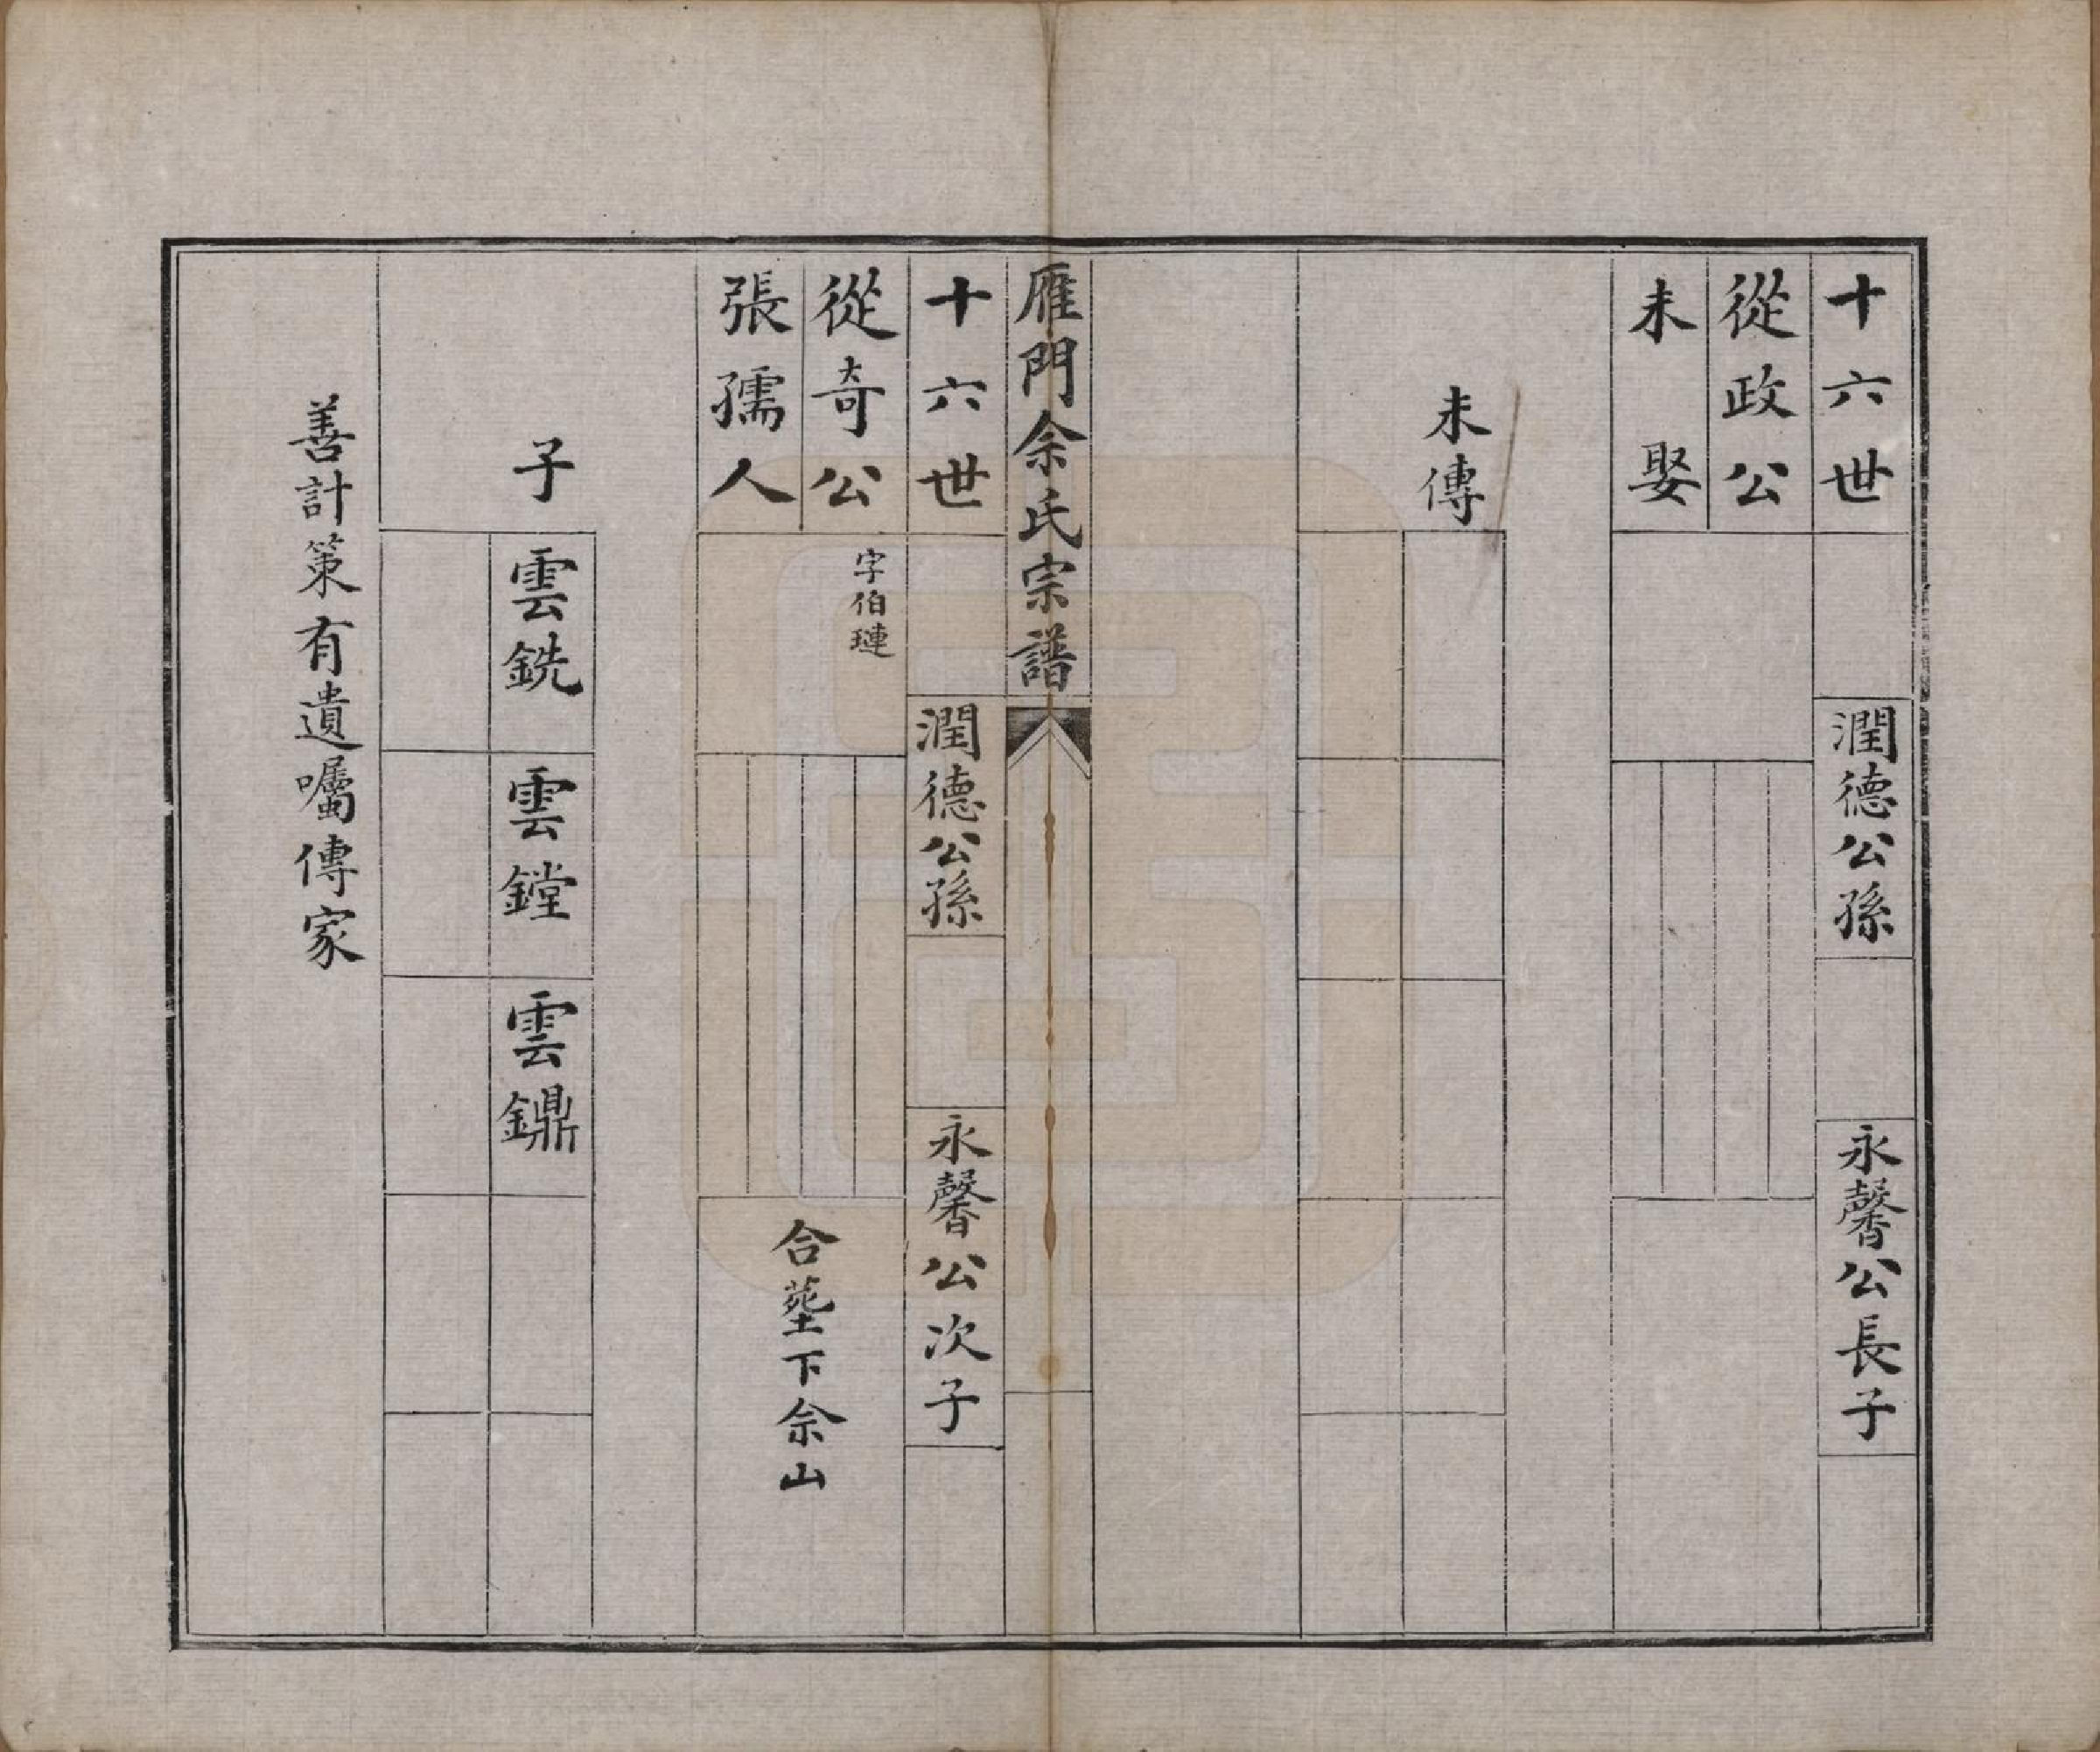 十六世
潤德公孫
永馨公長子
從政公
未娶
未傳
雁門佘氏宗譜
十六世
潤德公孫
永馨公次子
從奇公
字伯璉
張孺人
合塟下佘山
子
雲銑
雲鏜
雲鐤
善計策有遺囑傳家